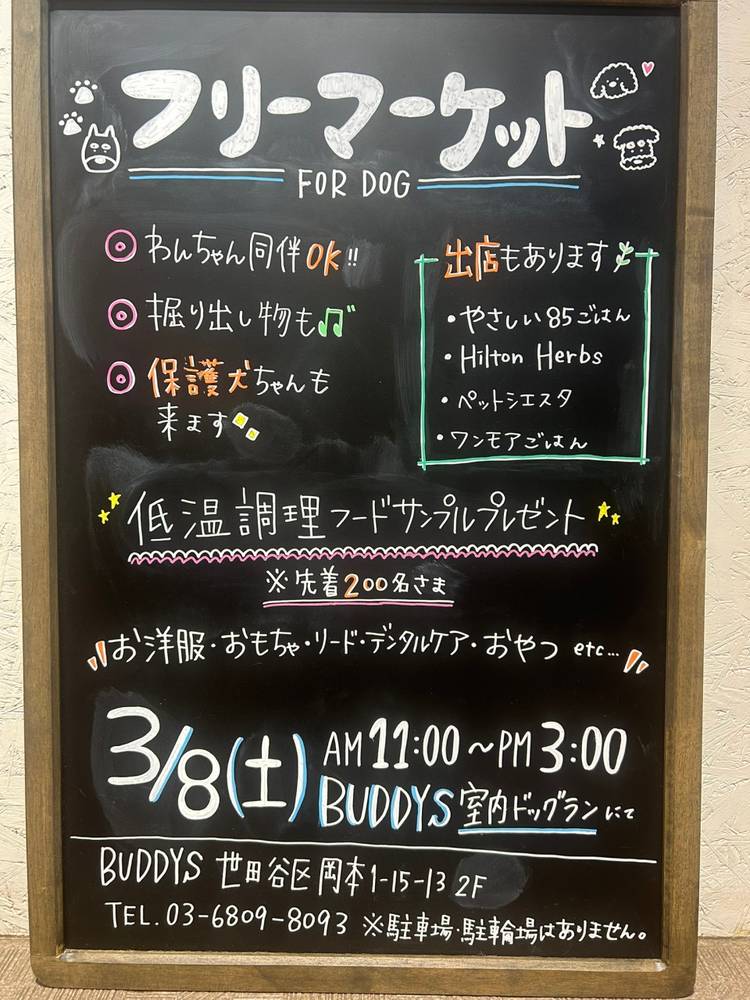 フリーマーケット
FOR DOG
わんちゃん同伴OK!!
掘り出し物も
保護犬ちゃんも
来ます
出店もあります
・やさしい85ごはん
・Hilton Herbs
・ペットシエスタ
・ワンモアごはん
低温調理フードサンプルプレゼント
※先着200名さま
お洋服・おもちゃ・リード・デンタルケア・おやつ etc...
3/8(土) AM11:00~PM3:00
BUDDYS室内ドッグランにて
BUDDYS 世田谷区岡本1-15-13 2F
TEL.03-6809-8093 ※駐車場・駐輪場はありません。